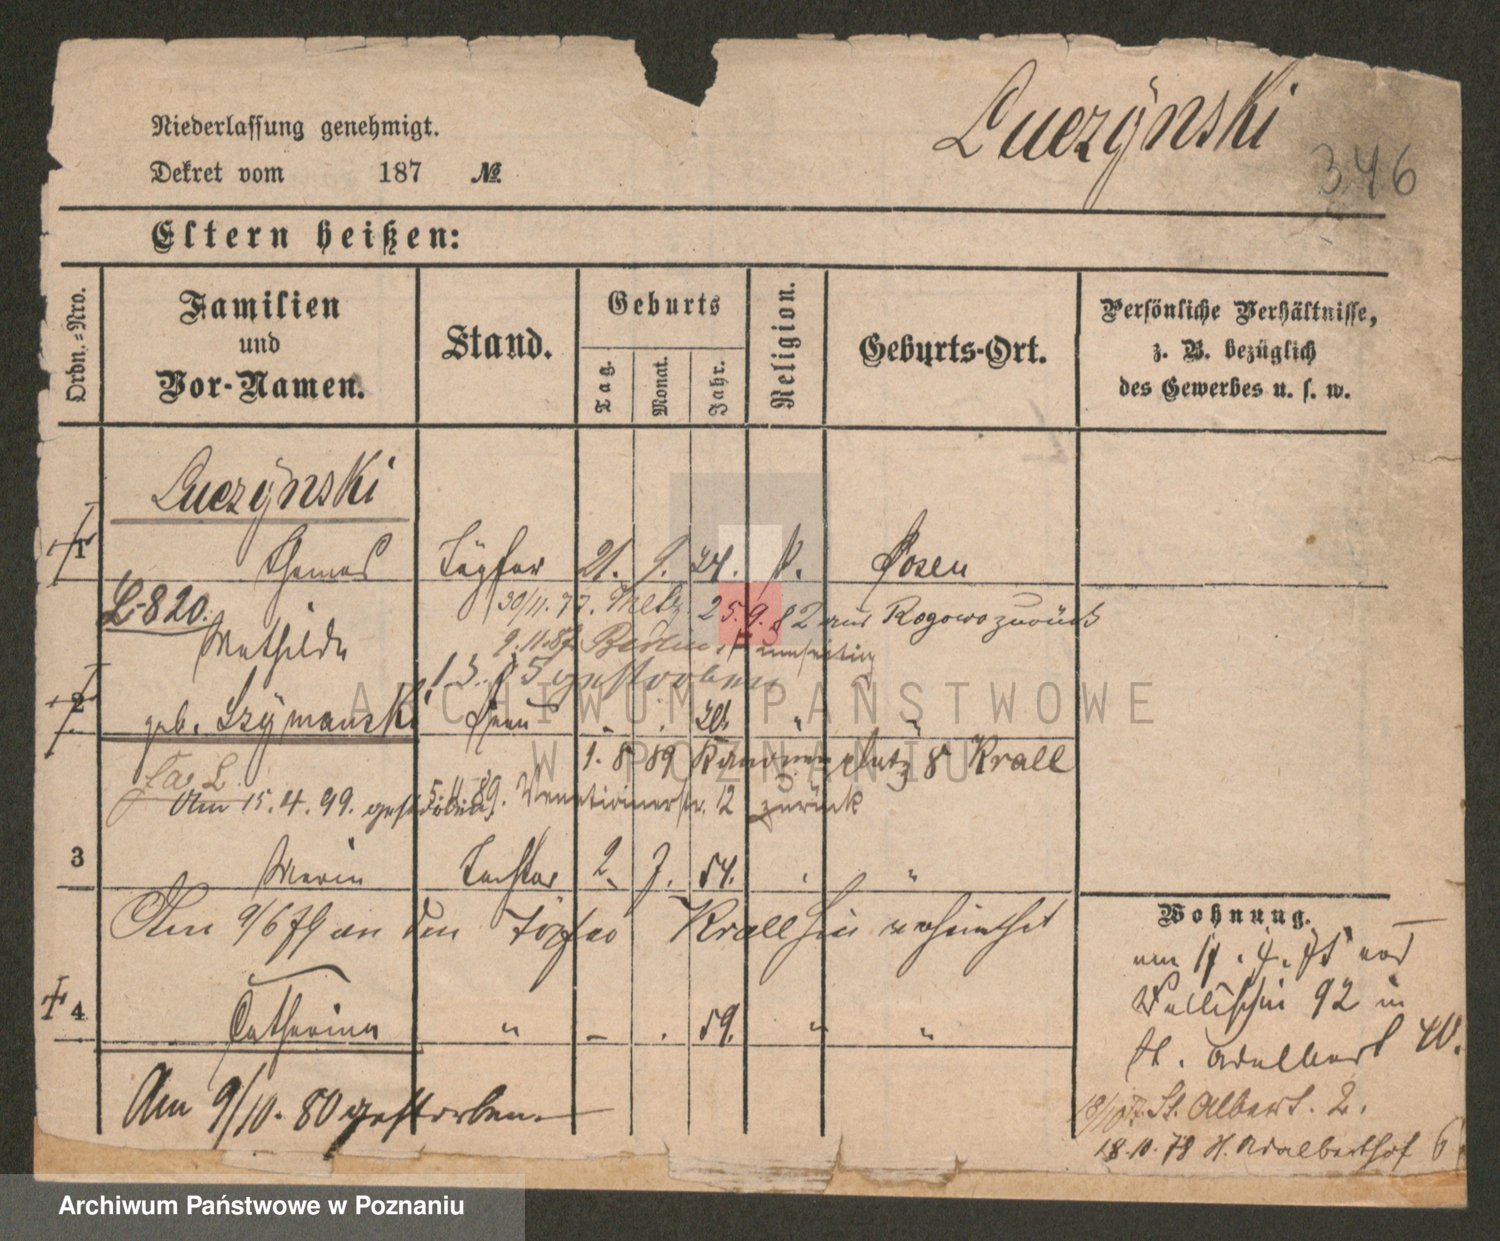 Luczÿnski
346
Niederlassung genehmigt.
Dekret vom 187 №.
Eltern heißen:
Ordn.-Nro.
Familien
und
Vor-Namen.
Stand.
Geburts
Tag.
Monat.
Jahr.
Religion.
Geburts-Ort.
Persönliche Verhältnisse,
z. B. bezüglich
des Gewerbes u. s. w.
Luczÿnski
1 Thomas Töpfer 21. 9. 24. k. Posen
L-820.
30/11.77. 25.9.82 aus Rogowo zurück
Mathilde
9.11.82 Berlin umseitig
1.3. 85 gestorben
2 geb. Szÿmanski Frau - . " "
1.8.89 Kanonenplatz 8 Krall
5.11.89. Venetianerstr. 12 zurück
Am 15.4.99. gestorben
3 Marie Tochter 2. 7. 54. . "
Am 9/6 79 an den Töpfer Krall hier verheirathet
4 Catharina " - . 59. " "
Am 9/10. 80 gestorben.
Wohnung.
am 17. 4. 75 von
Wallischei 92 in
St. Adalbert 40.
St. Albert. 2.
18.10.78 St. Adalberthof 6
ARCHIWUM PAŃSTWOWE
W POZNANIU
Archiwum Państwowe w Poznaniu